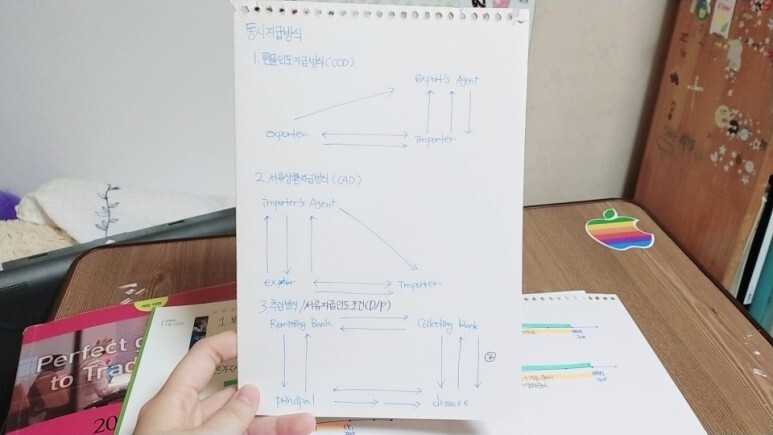 동시지급방식
1. 현물인도지급방식(COD)
Export's Agent
exporter
Importer
2. 서류상환지급방식(CAD)
Importer's Agent
exporter
Importer
3. 추심방식/서류지급인도조건(D/P)
Remitting Bank
Collecting Bank
principal
drawee
Perfect g
to Trad
20